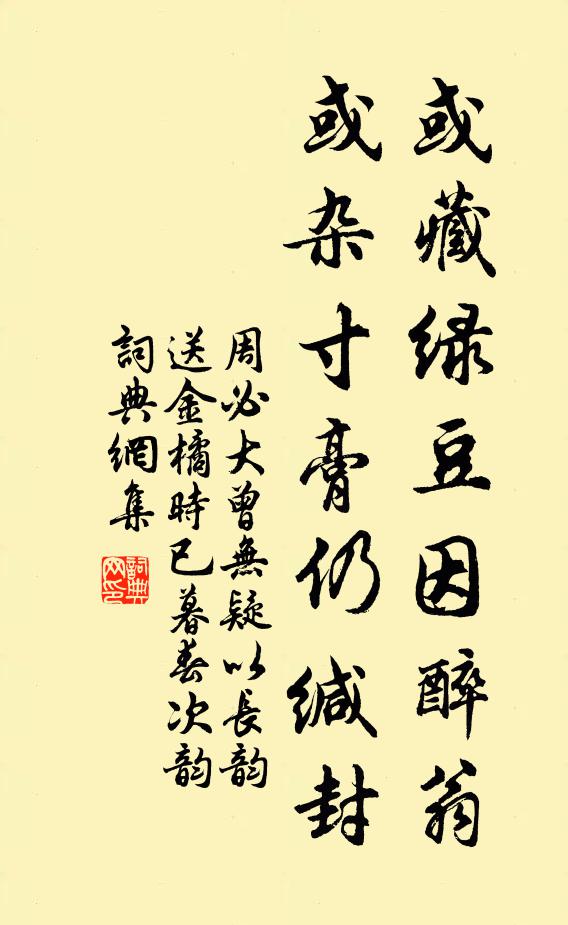 或藏绿豆因醉翁
或杂寸膏仍缄封
周必大曾無疑以長韵
送金橘時已暮春次韵
詞典網集
詞典網印